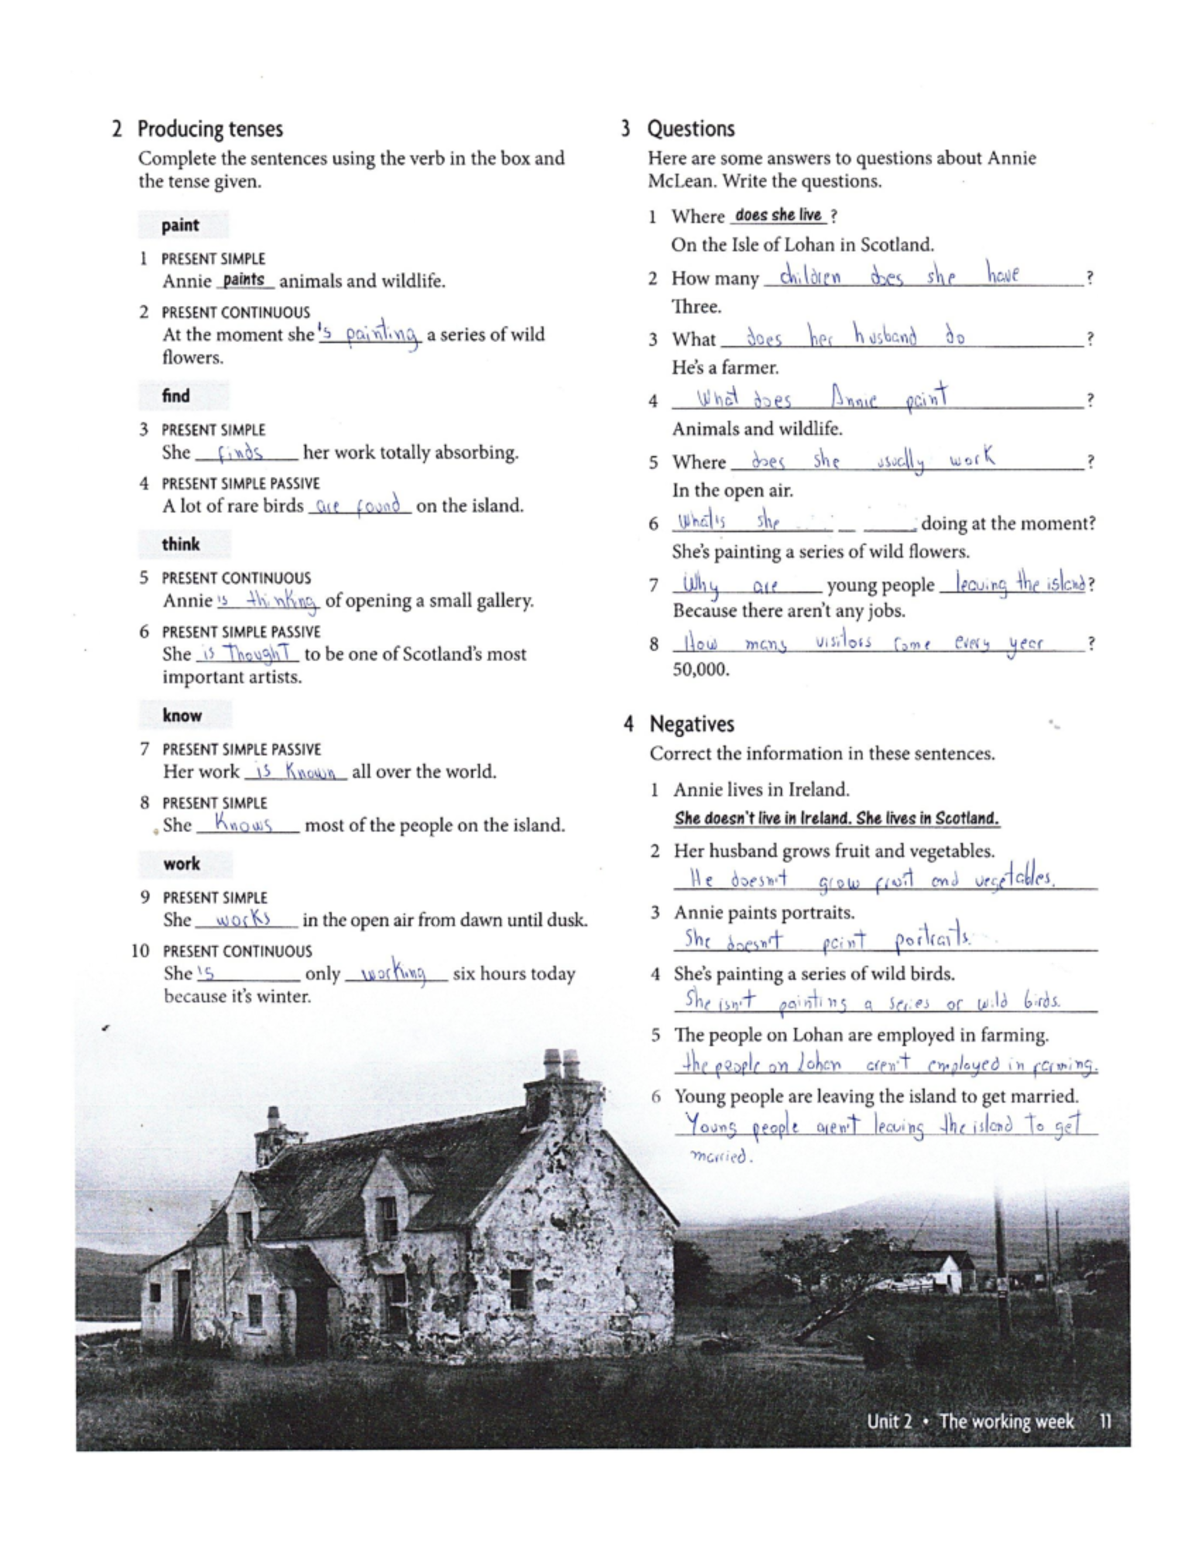 2 Producing tenses
Complete the sentences using the verb in the box and
the tense given.
paint
1 PRESENT SIMPLE
Annie paints animals and wildlife.
2 PRESENT CONTINUOUS
At the moment she 's painting a series of wild
flowers.
find
3 PRESENT SIMPLE
She finds her work totally absorbing.
4 PRESENT SIMPLE PASSIVE
A lot of rare birds are found on the island.
think
5 PRESENT CONTINUOUS
Annie 's thinking of opening a small gallery.
6 PRESENT SIMPLE PASSIVE
She is Thought to be one of Scotland's most
important artists.
know
7 PRESENT SIMPLE PASSIVE
Her work is Known all over the world.
8 PRESENT SIMPLE
She Knows most of the people on the island.
work
9 PRESENT SIMPLE
She works in the open air from dawn until dusk.
10 PRESENT CONTINUOUS
She 's only working six hours today
because it's winter.
3 Questions
Here are some answers to questions about Annie
McLean. Write the questions.
1 Where does she live ?
On the Isle of Lohan in Scotland.
2 How many children does she have ?
Three.
3 What does her husband do ?
He's a farmer.
4 What does Annie paint ?
Animals and wildlife.
5 Where does she usually work ?
In the open air.
6 What's she doing at the moment?
She's painting a series of wild flowers.
7 Why are young people leaving the island?
Because there aren't any jobs.
8 How many visitors come every year ?
50,000.
4 Negatives
Correct the information in these sentences.
1 Annie lives in Ireland.
She doesn't live in Ireland. She lives in Scotland.
2 Her husband grows fruit and vegetables.
He doesn't grow fruit and vegetables.
3 Annie paints portraits.
She doesn't paint portraits.
4 She's painting a series of wild birds.
She isn't painting a series of wild birds.
5 The people on Lohan are employed in farming.
the people on Lohan aren't employed in farming.
6 Young people are leaving the island to get married.
Young people aren't leaving the island to get
married.
Unit 2 • The working week 11